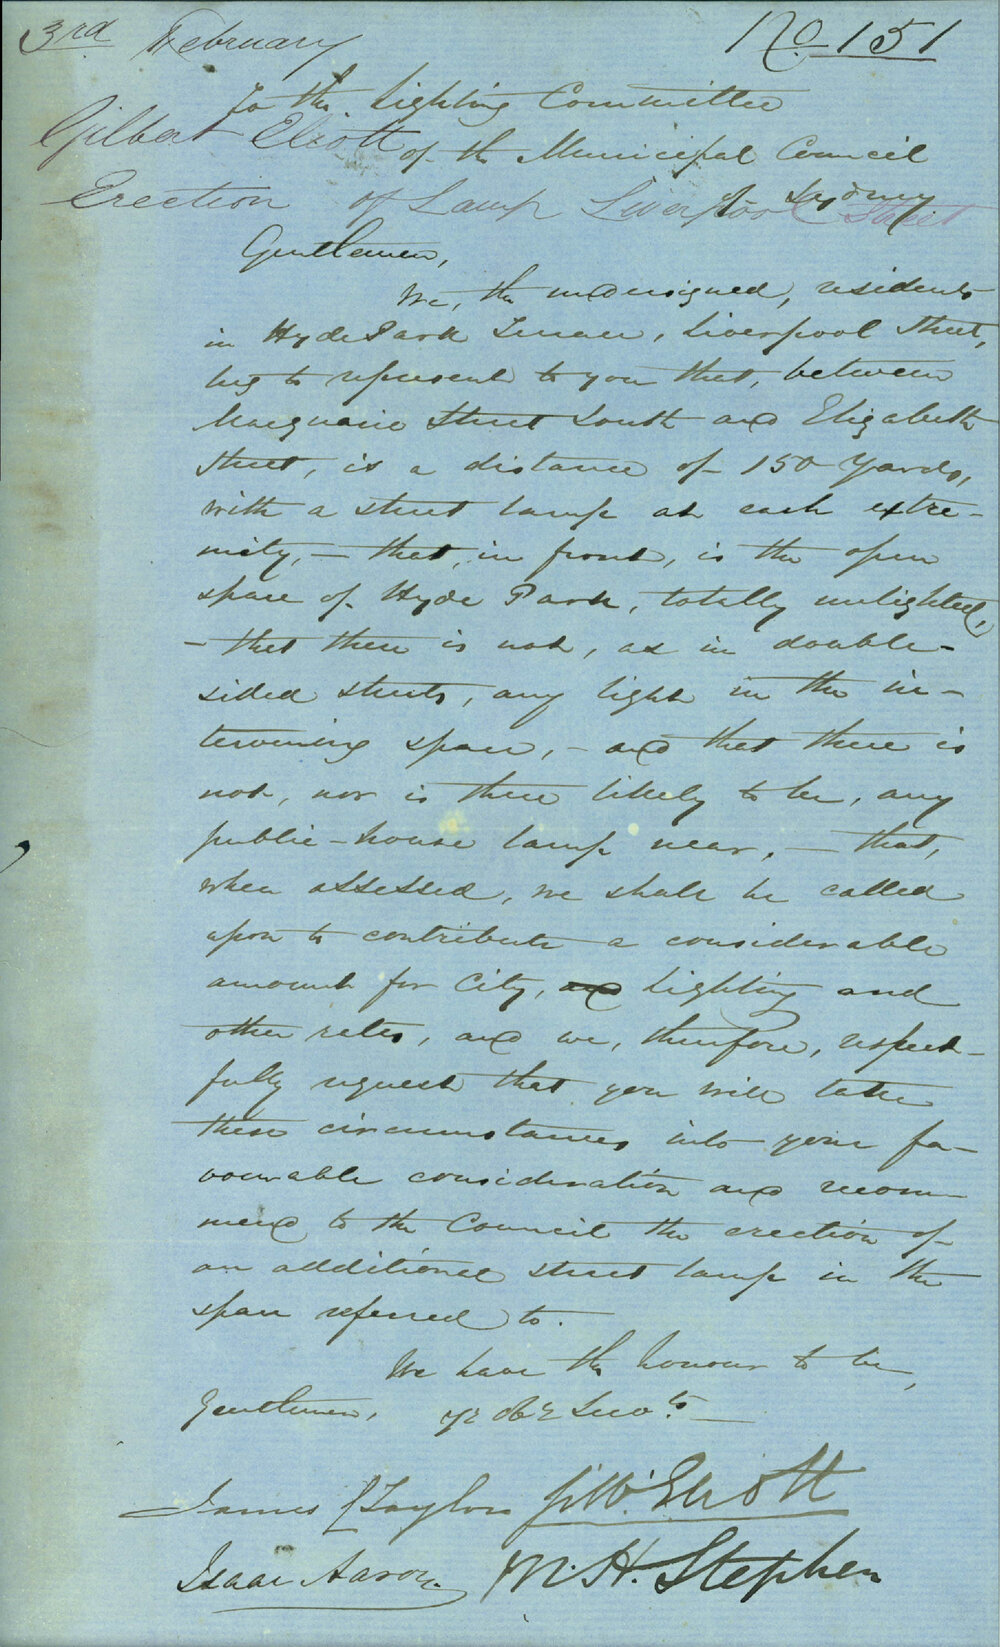 3rd February
No. 151
To the Lighting Committee
Gilbert Eliott
of the Municipal Council
of Sydney
Erection of Lamp Liverpool Street
Gentlemen,
We, the undersigned, residents
in Hyde Park Terrace, Liverpool Street,
beg to represent to you that, between
Macquarie Street South and Elizabeth
Street, is a distance of 150 Yards,
with a street lamp at each extre-
mity, — that, in front, is the open
space of Hyde Park, totally unlighted,
— that there is not, as in double-
sided streets, any light in the in-
tervening space, — and that there is
not, nor is there likely to be, any
public-house lamp near, — that,
when assessed, we shall be called
upon to contribute a considerable
amount for City, and Lighting and
other rates, and we, therefore, respect-
fully request that you will take
these circumstances into your fa-
vourable consideration and recom-
mend to the Council the erection of
an additional street lamp in the
space referred to.
We have the honour to be,
Gentlemen, yr obt Servts
James Taylor G. W. Eliott
Isaac Aaron M. H. Stephen